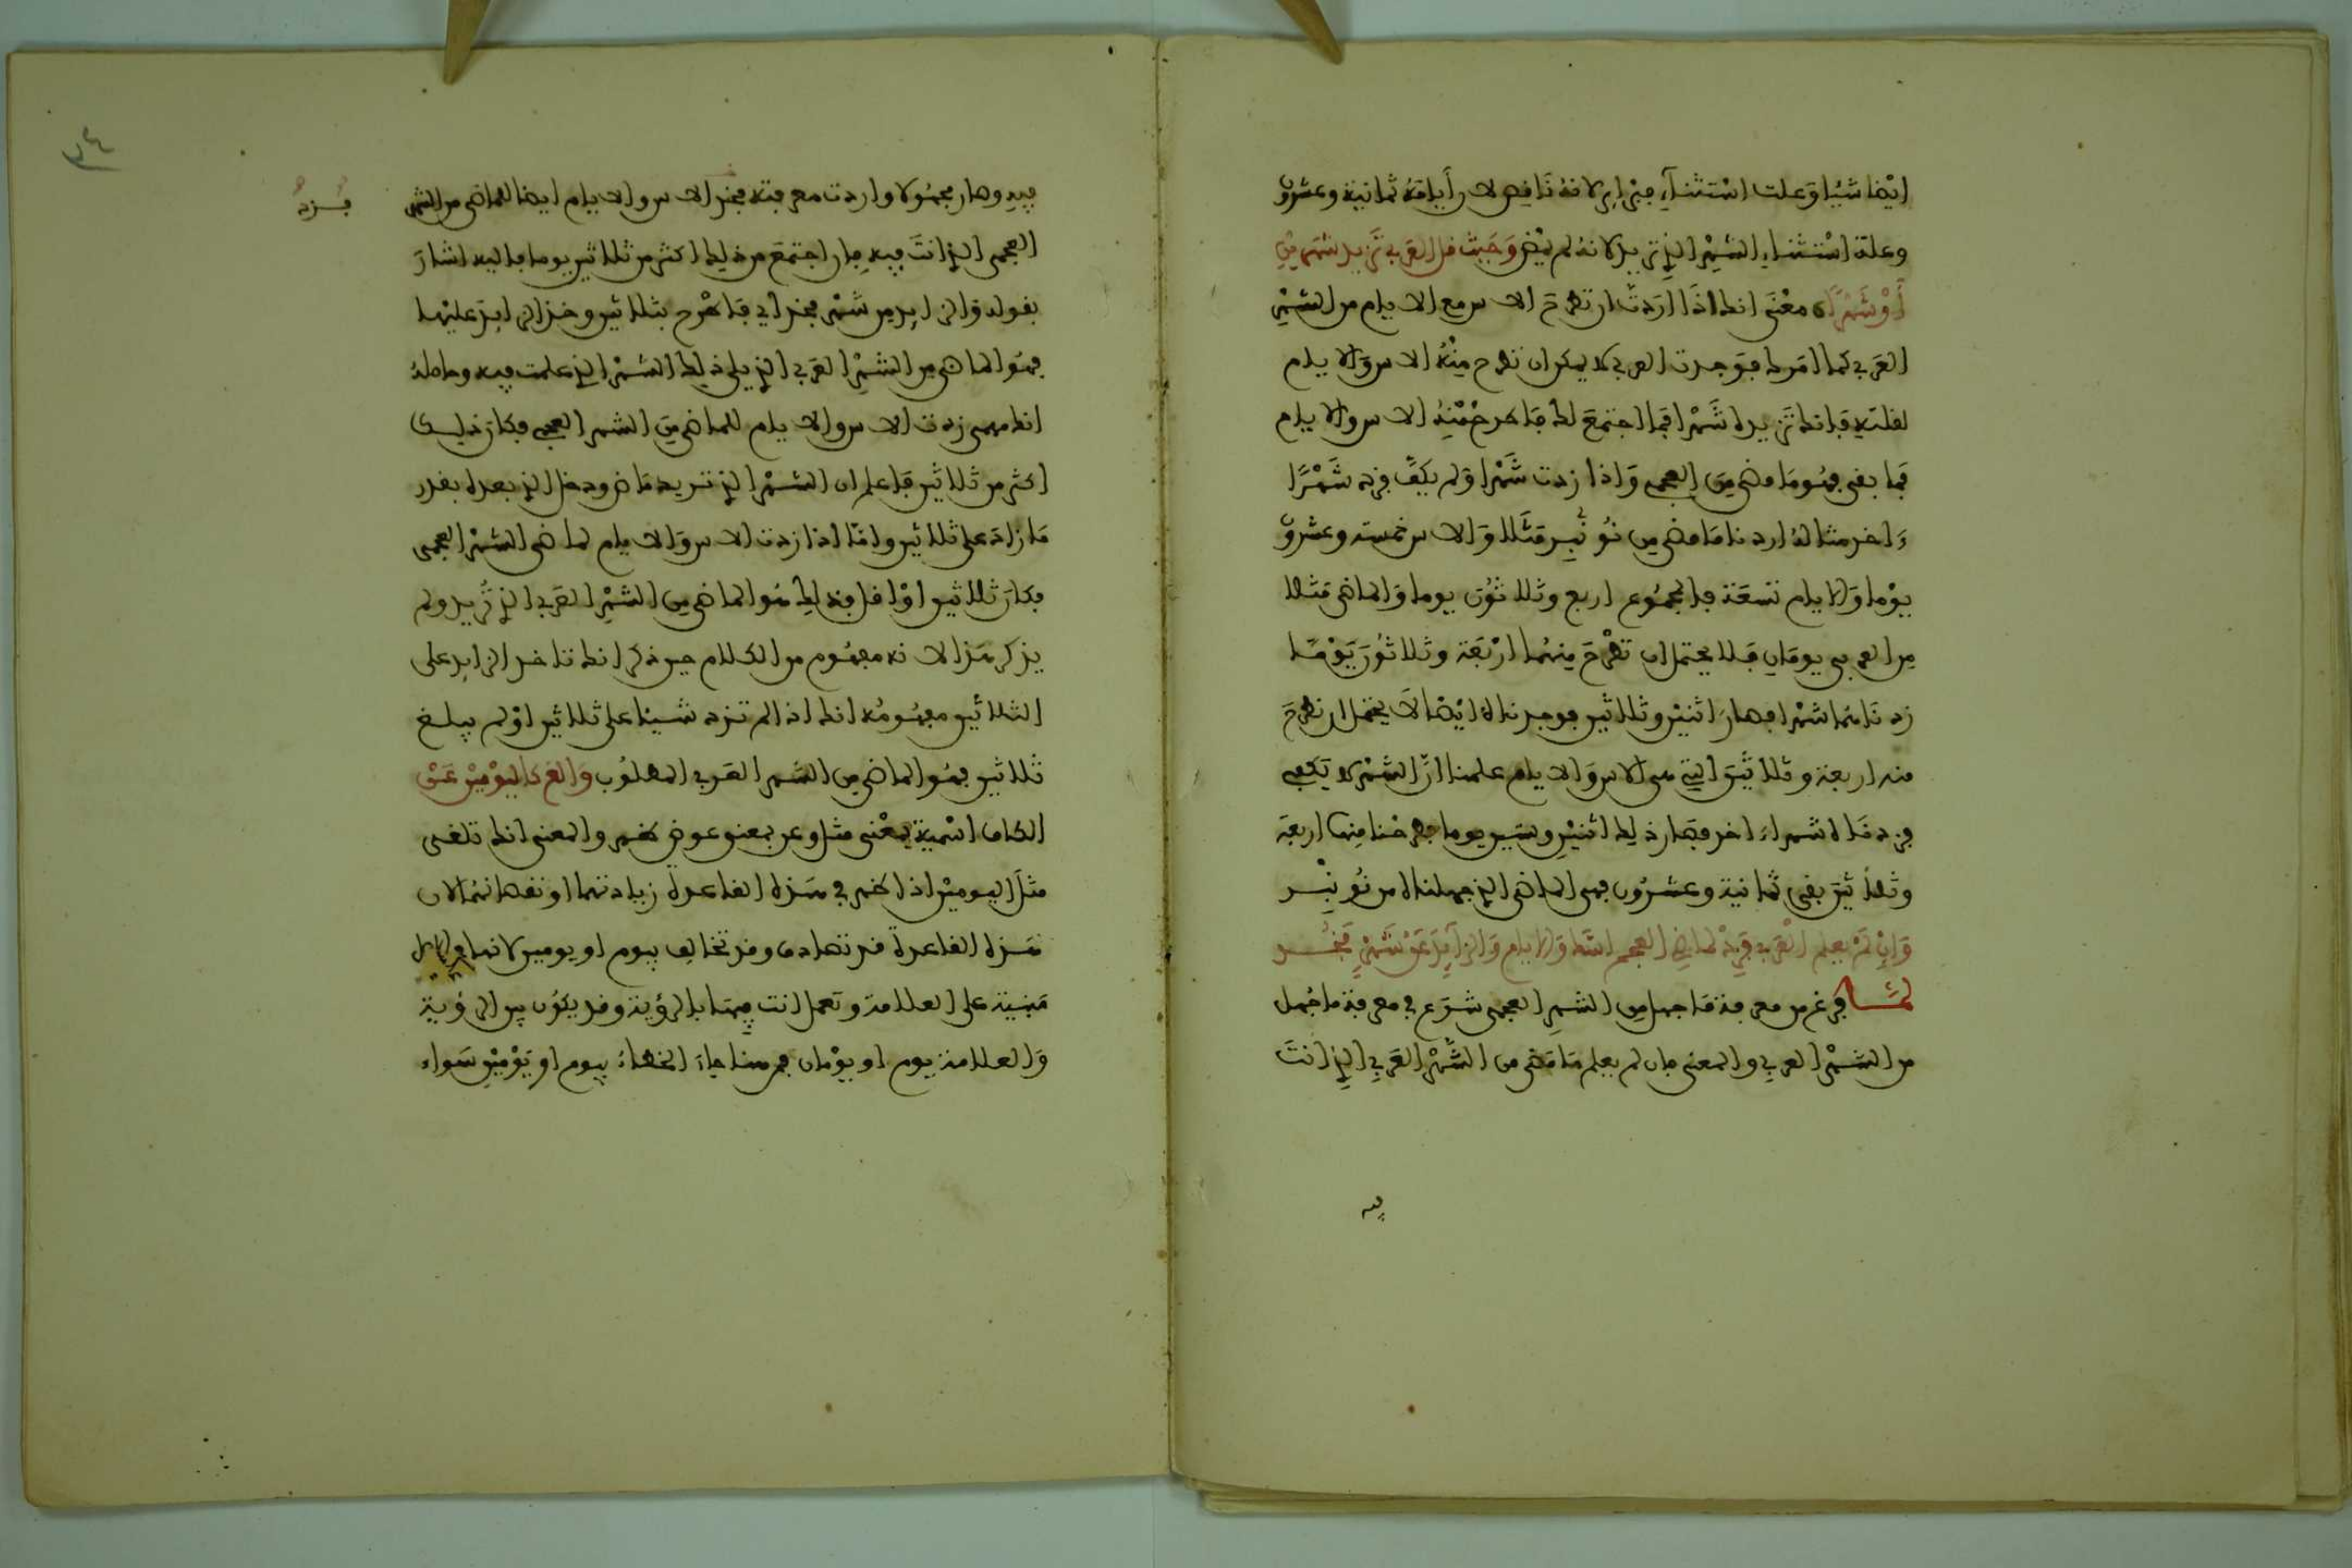 ايضا شيئا وعلت استثناء جبراير لانه ناقص لان أيامه ثمانية وعشرون
وعلة استثناء الشهر الذي تريد لانه لم يمض وحيث قل العربي تزيد شهرين
أو شهرا معنى انك اذا اردت ان تطرح الاس مع الايام من الشهر
العربي كما امرك فوجدت العربي لا يمكن ان تطرح منه الاس والايام
لقلته فانك تزيده شهرا فما اجتمع لك فاطرح منه الاس والايام
فما بقي فهو ما مضى من العجمي واذا زدت شهرا ولم يكف فزد شهرا
ءاخر مثاله اردنا ما مضى من نونبر مثلا والاس خمسة وعشرون
يوما والايام تسعة فالمجموع اربع وثلاثون يوما والماضي مثلا
من العربي يومان فلا يحتمل ان تطرح منهما اربعة وثلاثون يوما
زدناهما شهرا فصار اثنين وثلاثين فوجدناه ايضا لا يحتمل ان نطرح
منه اربعة وثلاثين التي هي الاس والايام علمنا ان الشهر لا يكفي
فزدناه شهرا ءاخر فصار ذلك اثنين وستين يوما طرحنا منها اربعة
وثلاثين بقي ثمانية وعشرون فهي الماضي الذي جهلناه من نونبر
وإن لم يعلم العربي فزد لماضي العجمي اسك والايام والزايد عن شهر فخذ
لما فرغ من معرفة ما جهل من الشهر العجمي شرع في معرفة ما جهل
من الشهر العربي والمعنى فان لم يعلم ما مضى من الشهر العربي الذي انت
فيه
٣٤
فيه وصار مجهولا واردت معرفته فخذ الاس والايام ايضا للماضي من الشهر
فزد
العجمي الذي انت فيه فان اجتمع من ذلك اكثر من ثلاثين يوما فاليه اشار
بقوله والزايد من شهر فخذ اي فاطرح بثلاثين وخذ الزايد عليها
فهو الماضي من الشهر العربي الذي يلي ذلك الشهر الذي علمت فيه وحاصله
انك مهمى زدت الاس والايام للماضي من الشهر العجمي فكان ذلك
اكثر من ثلاثين فاعلم ان الشهر الذي تريده ماض ودخل الذي بعده بقدر
ما زاد على ثلاثين واما اذا زدت الاس والايام لماضي الشهر العجمي
فكان ثلاثين او اقل فذلك هو الماضي من الشهر العربي الذي تريد ولم
يذكر هذا لانه مفهوم من الكلام حين ذكر انك تاخذ الزايد على
الثلاثين مفهومه انك اذا لم تزد شيئا على ثلاثين او لم يبلغ
ثلاثين فهو الماضي من الشهر العربي المطلوب والغ كاليومين عن
الكاف اسمية بمعنى مثل وعن بمعنى عوض والمعنى انك تلغي
مثل اليومين اذا في هذه القاعدة زيادتهما او نقصانهما لان
هذه القاعدة قد تصادف وقد تخالف بيوم او يومين لانها
مبنية على العلامة وتعمل انت فيها بالرؤية وقد يكون بين الرؤية
والعلامة يوم او يومان فمن هنا جاء الخطاء بيوم او يومين سواء